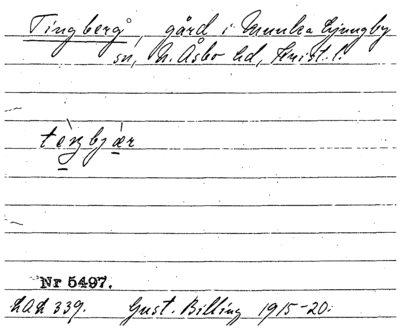 Tingberg, gård i Munka Ljungby
sn, N. Åsbo hd, Krist. l.
tèŋbjær
Nr 5497.
LAL 339. Gust. Billing 1915-20.